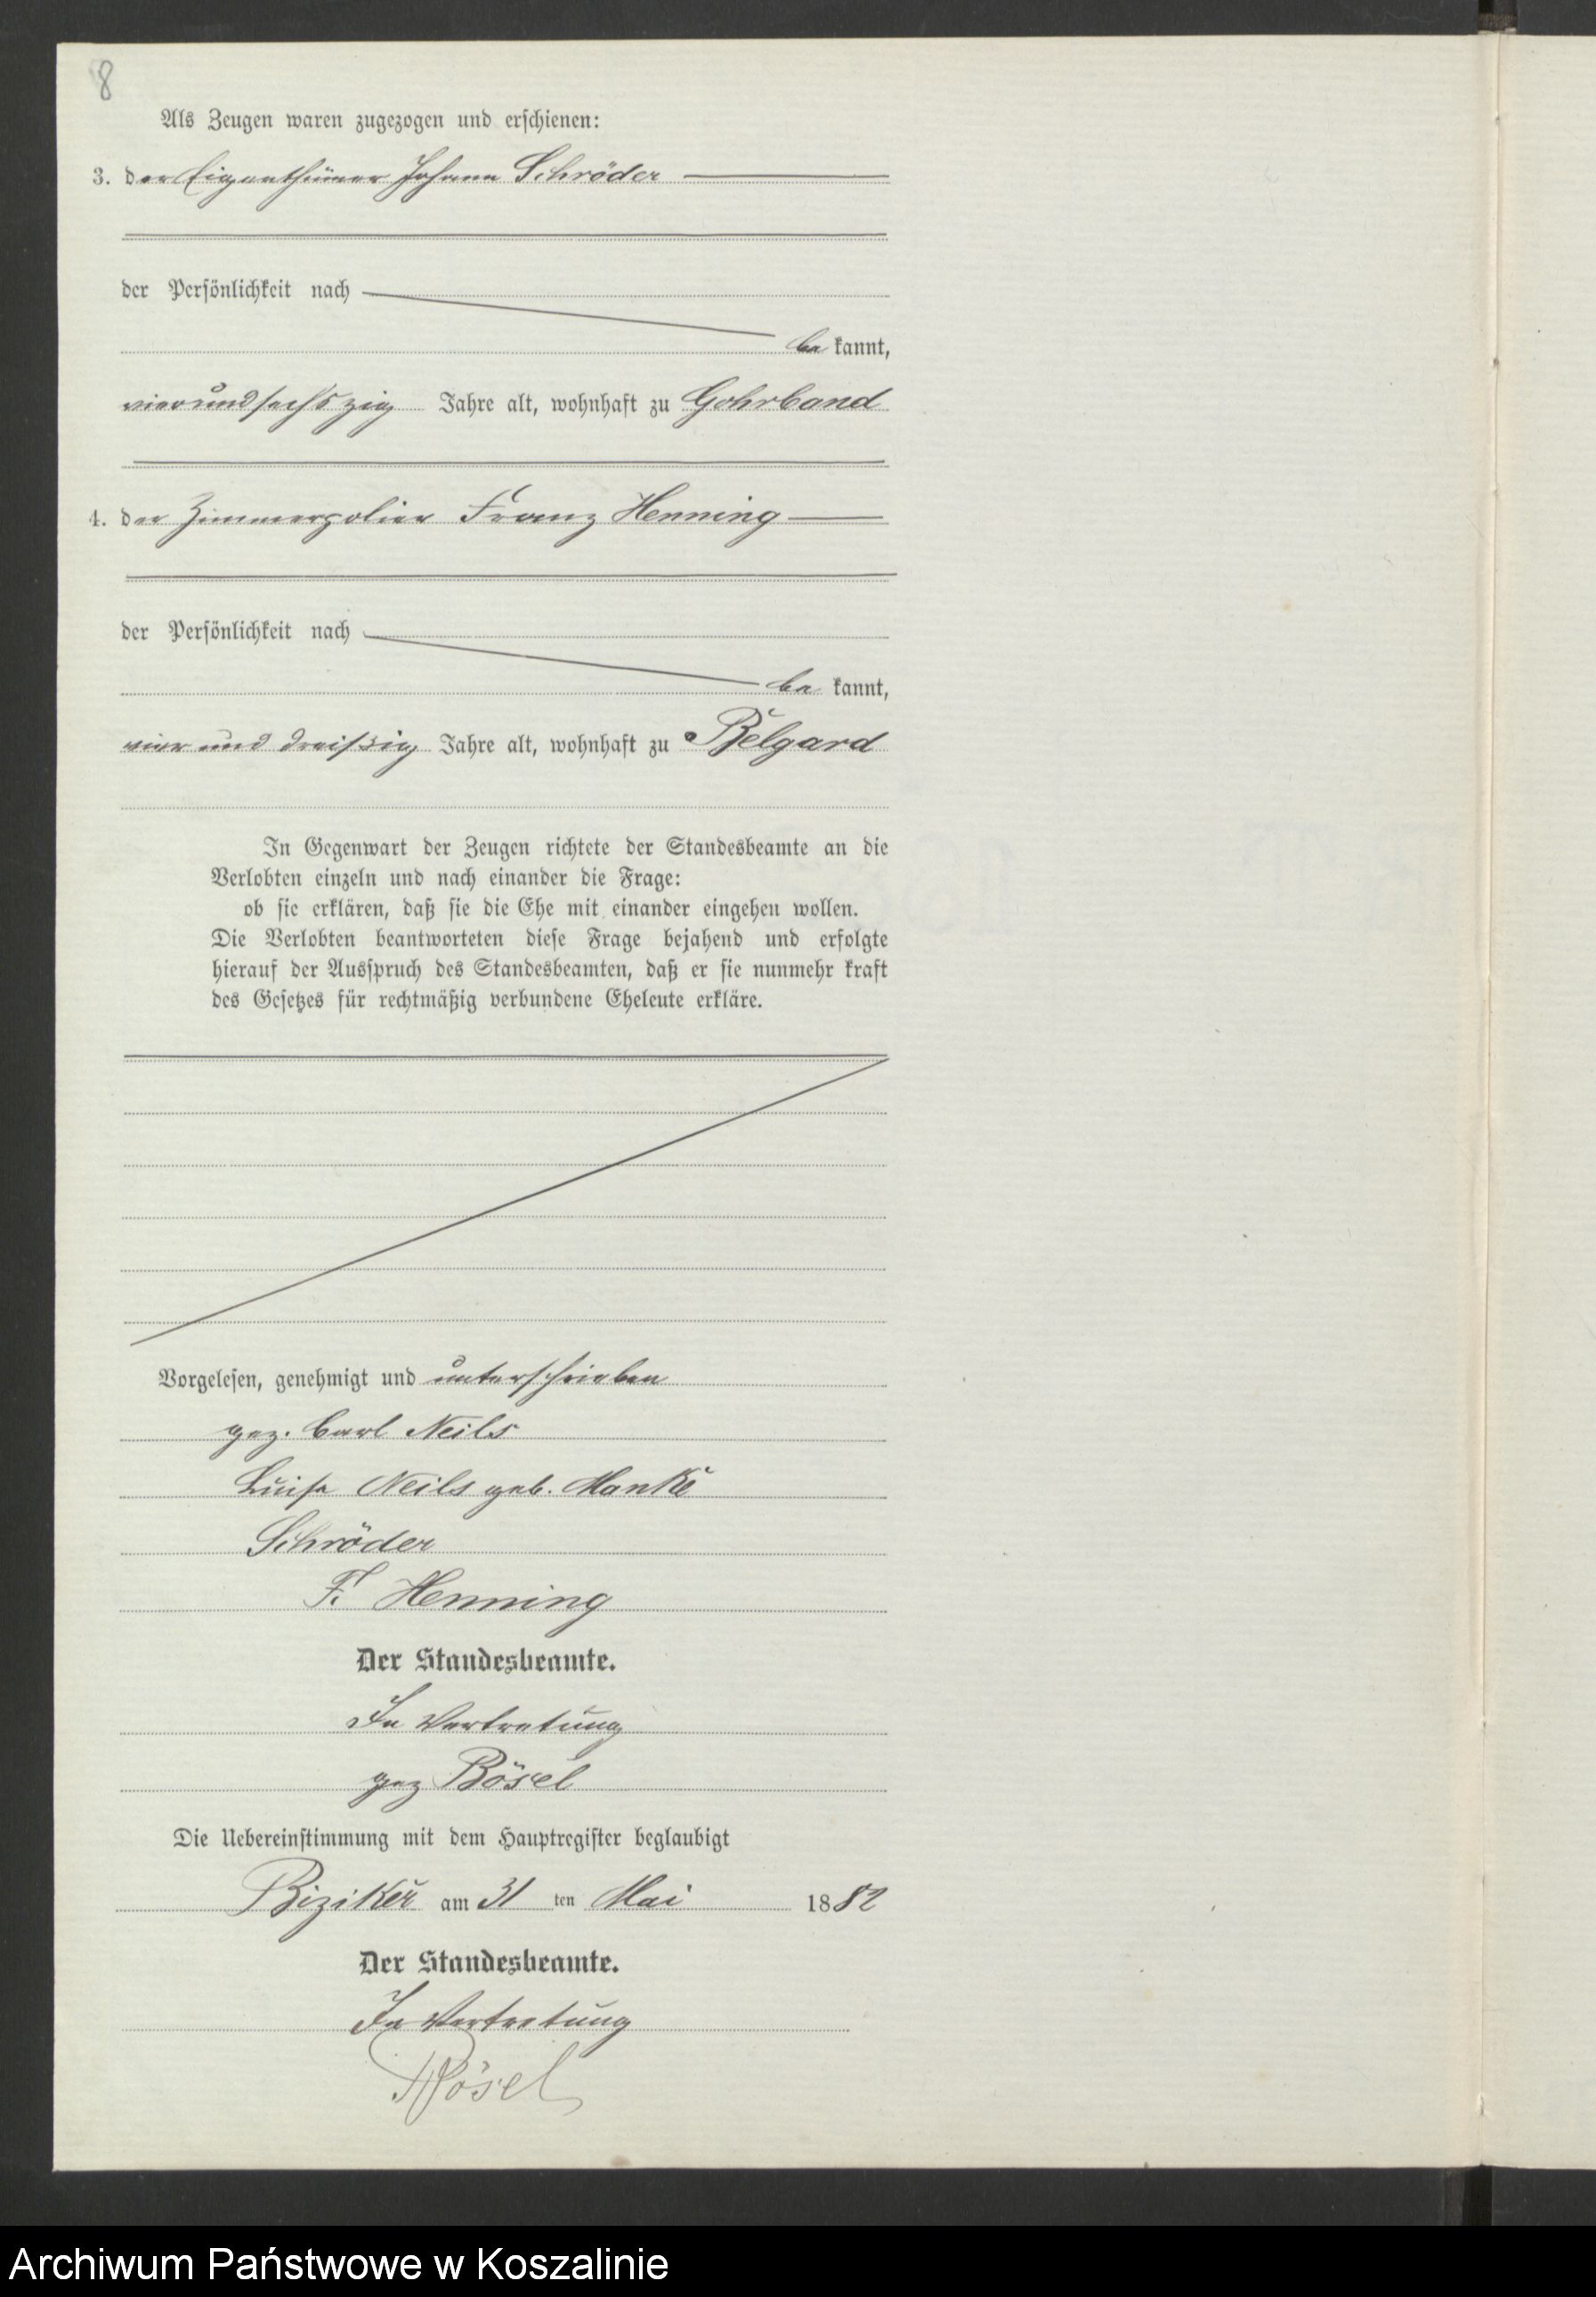 8
Als Zeugen waren zugezogen und erschienen:
3. der Eigenthümer Johann Schröder
der Persönlichkeit nach
be kannt,
vierundsechszig Jahre alt, wohnhaft zu Gohrband
4. der Zimmerpolier Franz Henning
der Persönlichkeit nach
be kannt,
vier und dreißig Jahre alt, wohnhaft zu Belgard
In Gegenwart der Zeugen richtete der Standesbeamte an die
Verlobten einzeln und nach einander die Frage:
ob sie erklären, daß sie die Ehe mit einander eingehen wollen.
Die Verlobten beantworteten diese Frage bejahend und erfolgte
hierauf der Ausspruch des Standesbeamten, daß er sie nunmehr kraft
des Gesetzes für rechtmäßig verbundene Eheleute erkläre.
Vorgelesen, genehmigt und unterschrieben
gez. Carl Neils
Luise Neils geb. Manke
Schröder
F. Henning
Der Standesbeamte.
In Vertretung
gez Bösel
Die Uebereinstimmung mit dem Hauptregister beglaubigt
Biziker am 31 ten Mai 1882
Der Standesbeamte.
In Vertretung
Bösel
Archiwum Państwowe w Koszalinie